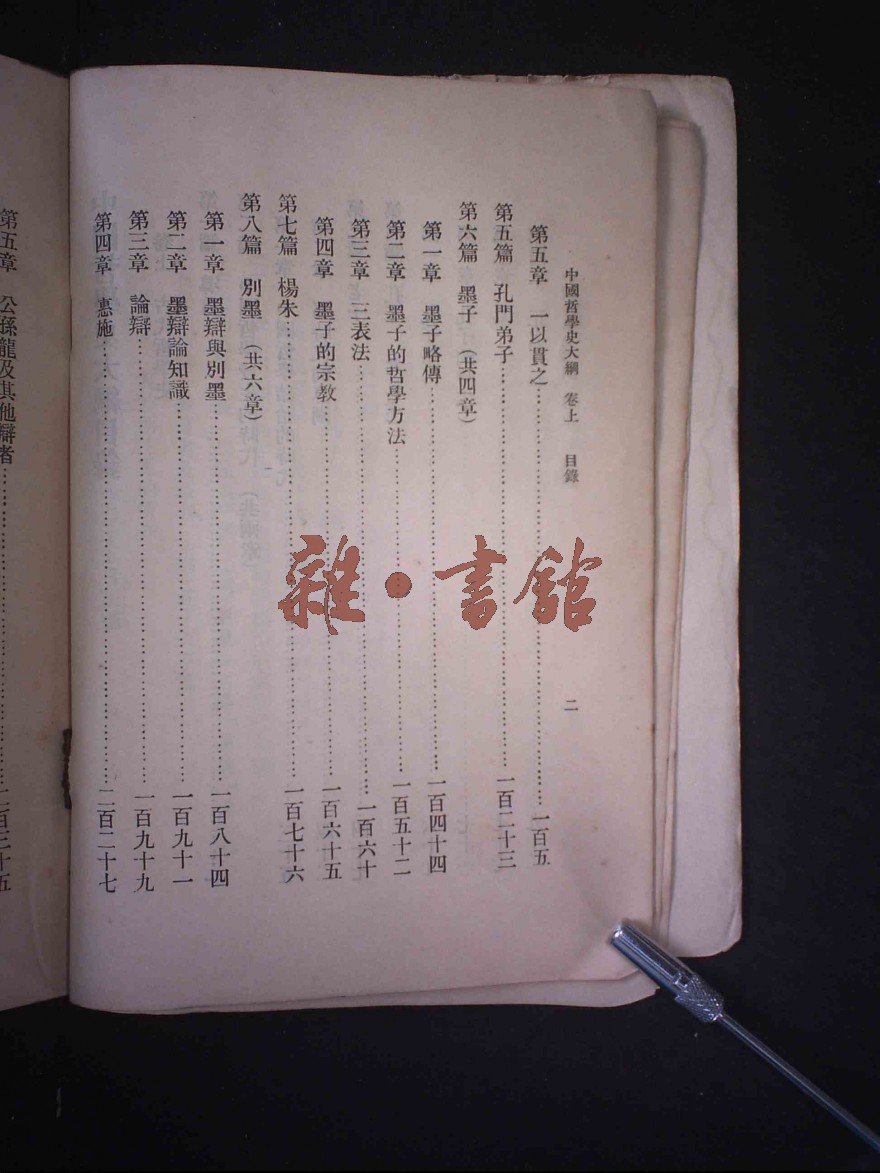 中國哲學史大綱 卷上 目錄 二
第五章 一以貫之……一百五
第五篇 孔門弟子……一百二十三
第六篇 墨子 (共四章)
第一章 墨子略傳……一百四十四
第二章 墨子的哲學方法……一百五十二
第三章 三表法……一百六十
第四章 墨子的宗教……一百六十五
第七篇 楊朱……一百七十六
第八篇 別墨 (共六章)
第一章 墨辯與別墨……一百八十四
第二章 墨辯論知識……一百九十一
第三章 論辯……一百九十九
第四章 惠施……二百二十七
第五章 公孫龍及其他辯者……二百三十五
雜·書館